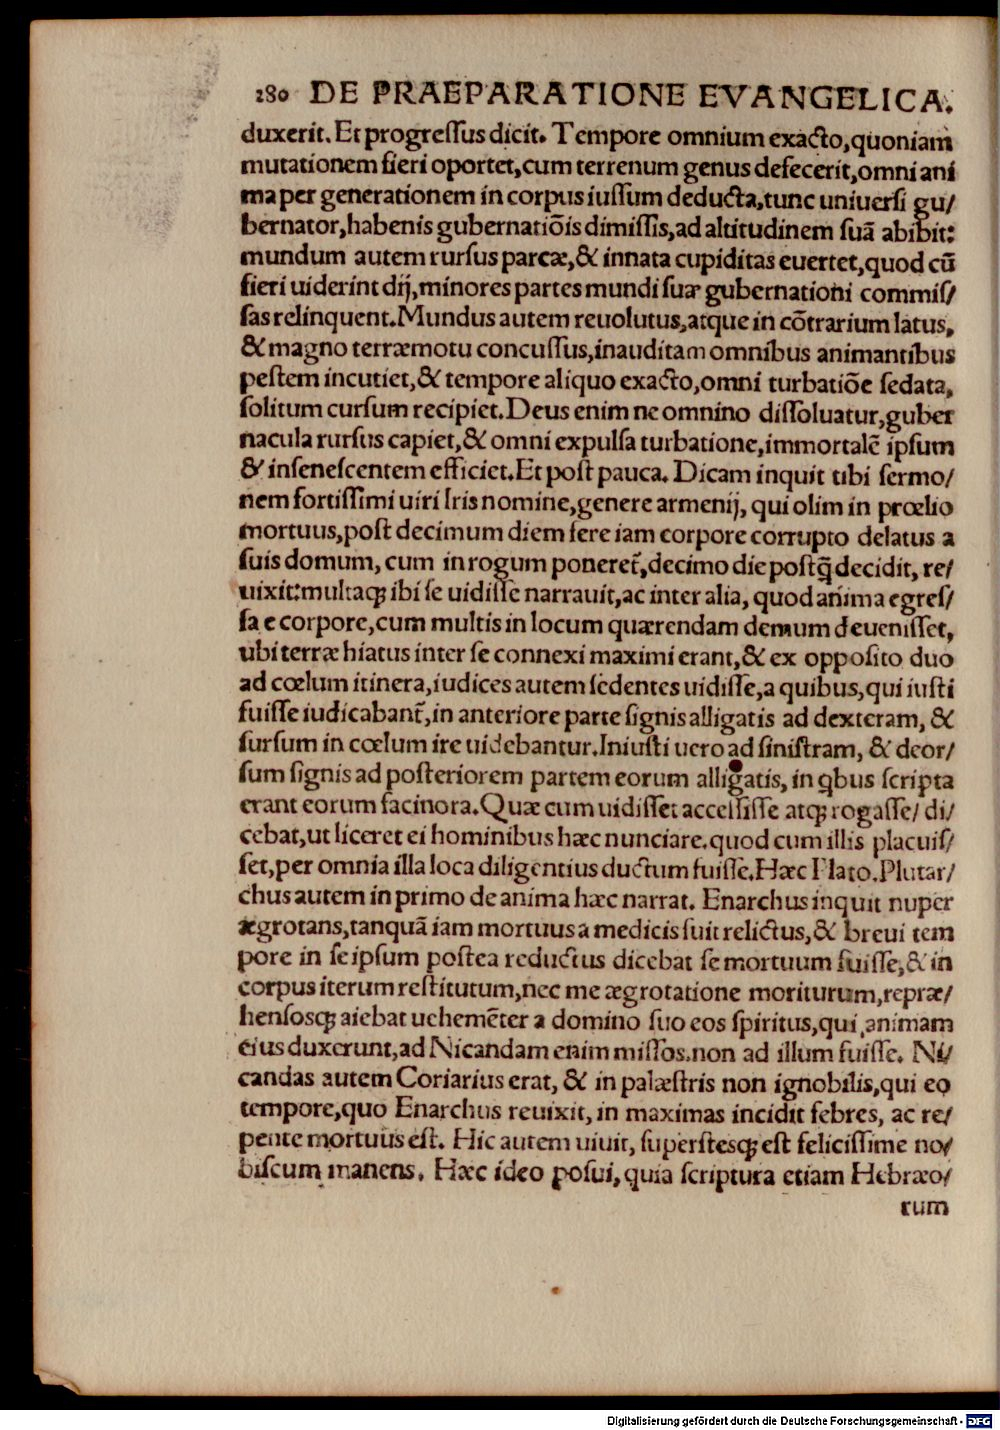 280 DE PRAEPARATIONE EVANGELICA.
duxerit. Et progressus dicit. Tempore omnium exacto, quoniam
mutationem fieri oportet, cum terrenum genus defecerit, omni ani
ma per generationem in corpus iussum deducta, tunc uniuersi gu/
bernator, habenis gubernatiõis dimissis, ad altitudinem suã abibit:
mundum autem rursus parcæ, & innata cupiditas euertet, quod cũ
fieri uiderint dij, minores partes mundi suæ gubernationi commis/
sas relinquent. Mundus autem reuolutus, atque in cõtrarium latus,
& magno terræmotu concussus, inauditam omnibus animantibus
pestem incutiet, & tempore aliquo exacto, omni turbatiõe sedata,
solitum cursum recipiet. Deus enim ne omnino dissoluatur, guber
nacula rursus capiet, & omni expulsa turbatione, immortalẽ ipsum
& insenescentem efficiet. Et post pauca. Dicam inquit tibi sermo/
nem fortissimi uiri Iris nomine, genere armenij, qui olim in prœlio
mortuus, post decimum diem fere iam corpore corrupto delatus a
suis domum, cum in rogum poneret̃, decimo die postq̃ decidit, re/
uixit: multaqꝫ ibi se uidisse narrauit, ac inter alia, quod anima egres/
sa e corpore, cum multis in locum quærendam demum deuenisset,
ubi terræ hiatus inter se connexi maximi erant, & ex opposito duo
ad cœlum itinera, iudices autem sedentes uidisse, a quibus, qui iusti
fuisse iudicabant̃, in anteriore parte signis alligatis ad dexteram, &
sursum in cœlum ire uidebantur. Iniusti uero ad sinistram, & deor/
sum signis ad posteriorem partem eorum alligatis, in qbus scripta
erant eorum facinora. Quæ cum uidisset accessisse atqꝫ rogasse/ di/
cebat, ut liceret ei hominibus hæc nunciare. quod cum illis placuis/
set, per omnia illa loca diligentius ductum fuisse. Hæc Plato. Plutar/
chus autem in primo de anima hæc narrat. Enarchus inquit nuper
ægrotans, tanquã iam mortuus a medicis fuit relictus, & breui tem
pore in seipsum postea reductus dicebat se mortuum fuisse, & in
corpus iterum restitutum, nec me ægrotatione moriturum, repræ/
hensosqꝫ aiebat uehemẽter a domino suo eos spiritus, qui animam
eius duxerunt, ad Nicandam enim missos. non ad illum fuisse. Ni/
candas autem Coriarius erat, & in palæstris non ignobilis, qui eo
tempore, quo Enarchus reuixit, in maximas incidit febres, ac re/
pente mortuus est. Hic autem uiuit, superstesqꝫ est felicissime no/
biscum manens. Hæc ideo posui, quia scriptura etiam Hebræo/
rum
Digitalisierung gefördert durch die Deutsche Forschungsgemeinschaft - DFG